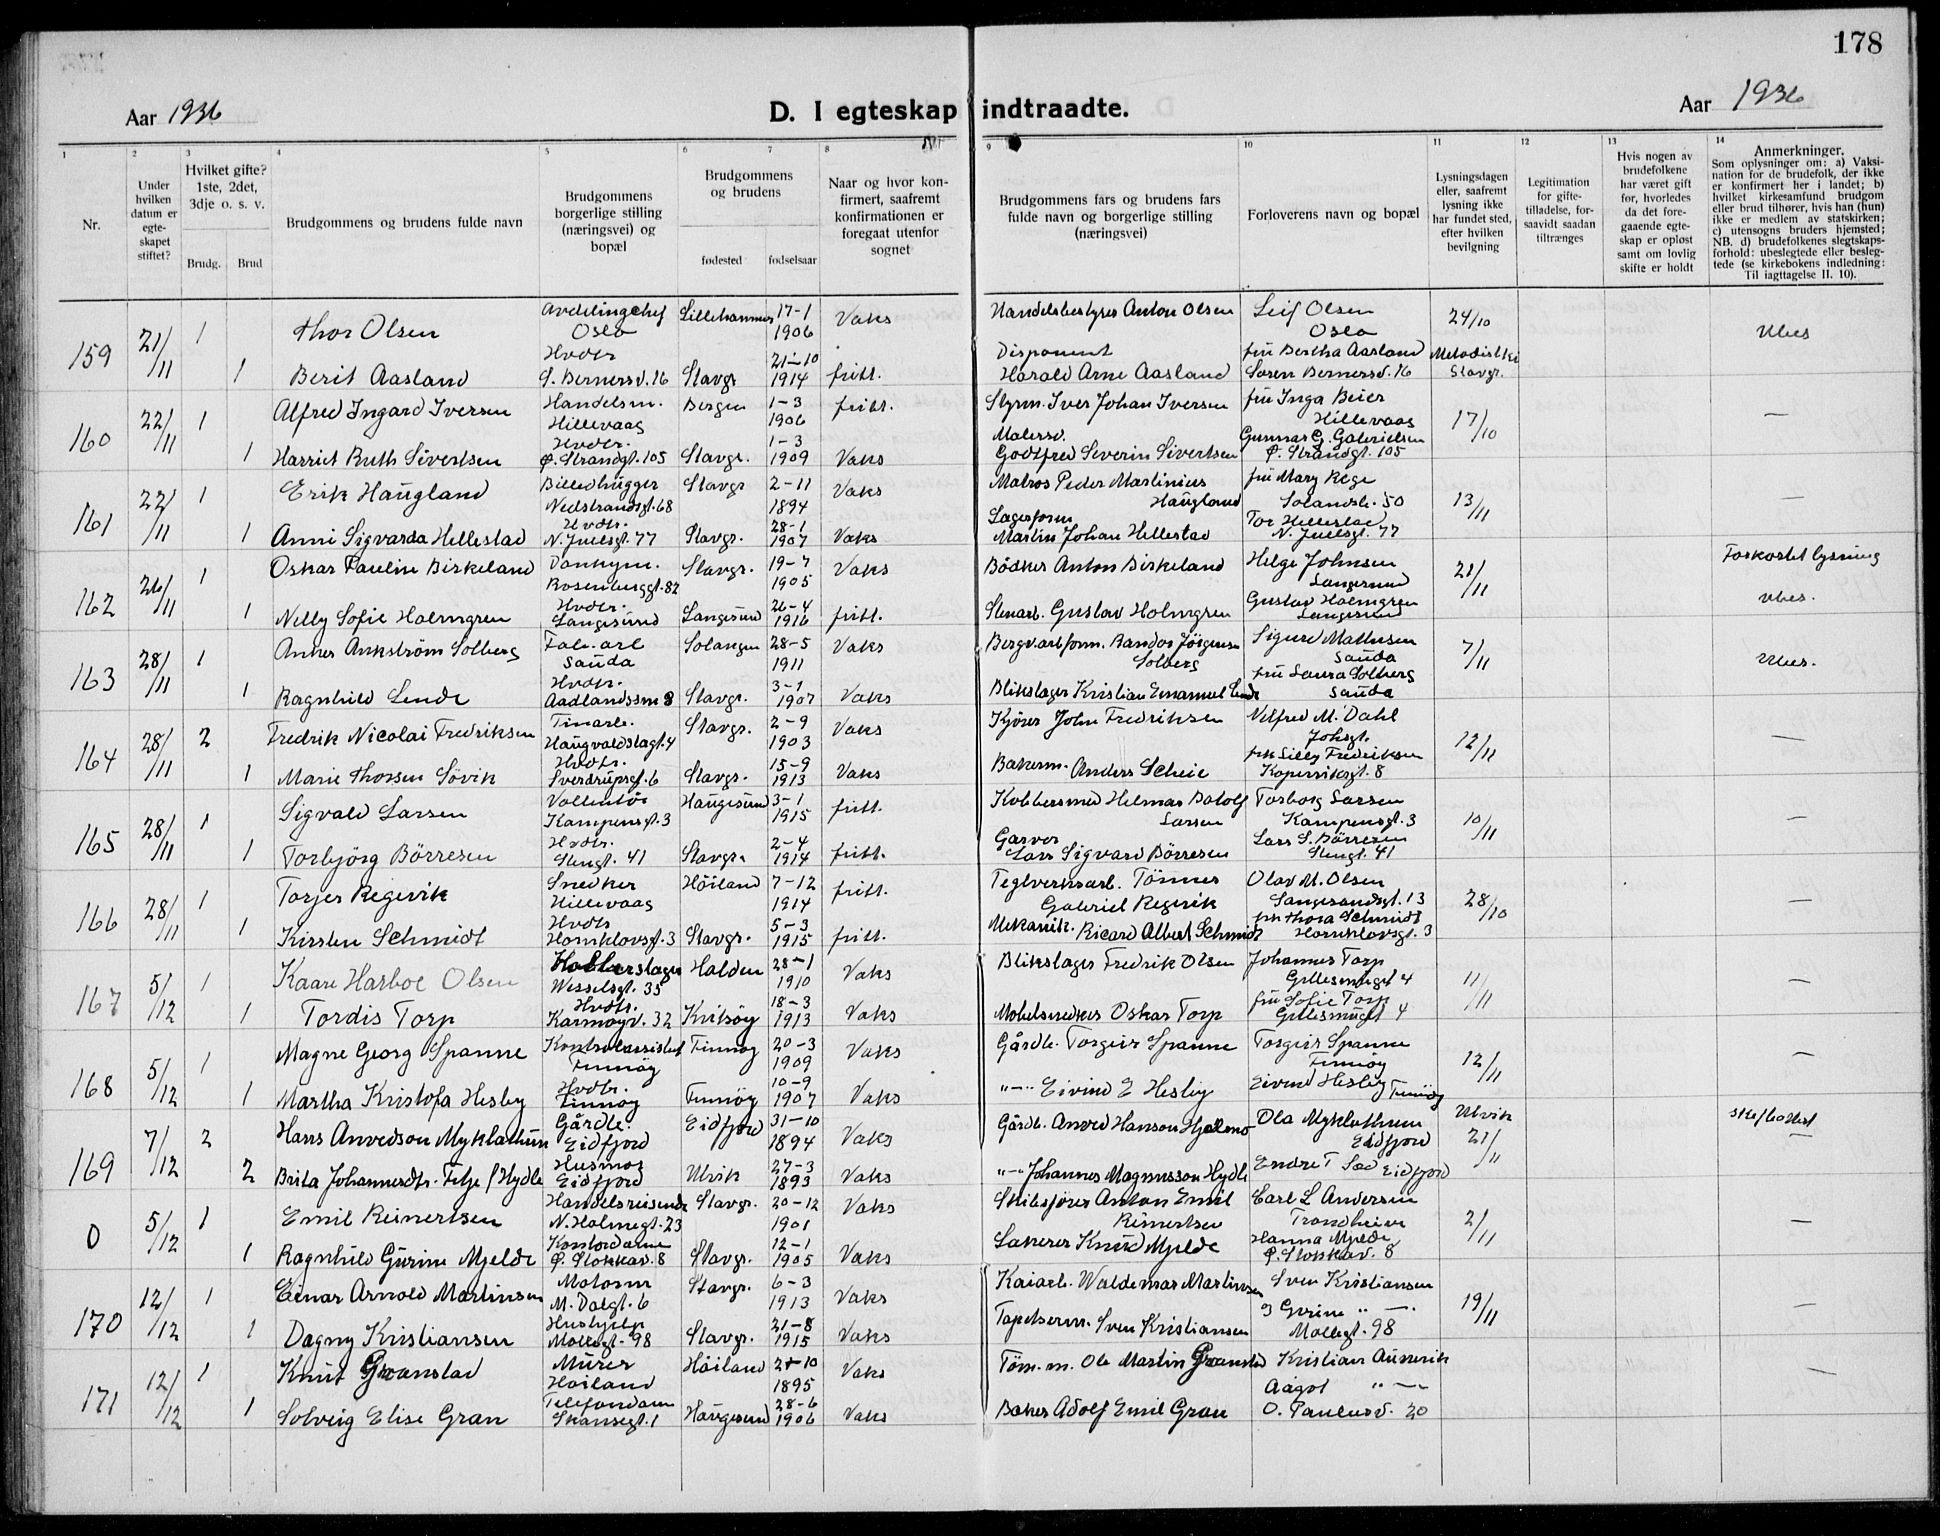 178
Aar 1936
D. I egteskap indtraadte.
Aar 1936
1 2 3 4 5 6 7 8 9 10 11 12 13 14
Nr.
Under hvilken datum er egte-skapet stiftet?
Hvilket gifte? 1ste, 2det, 3dje o. s. v.
Brudg. Brud
Brudgommens og brudens fulde navn
Brudgommens borgerlige stilling (næringsvei) og bopæl
Brudgommens og brudens
fødested fødselsaar
Naar og hvor kon-firmert, saafremt konfirmationen er foregaat utenfor sognet
Brudgommens fars og brudens fars fulde navn og borgerlige stilling (næringsvei)
Forloverens navn og bopæl
Lysningsdagen eller, saafremt lysning ikke har fundet sted, efter hvilken bevilgning
Legitimation for gifte-tilladelse, for-saavidt saadan tiltrænges
Hvis nogen av brudefolkene har været gift før, hvorledes da det fore-gaaende egte-skap er opløst samt om lovlig skifte er holdt
Anmerkninger.
Som oplysninger om: a) Vaksi-nation for de brudefolk, der ikke er konfirmert her i landet; b) hvilket kirkesamfund brudgom eller brud tilhører, hvis han (hun) ikke er medlem av statskirken; c) utensogns bruders hjemsted; NB. d) brudefolkenes slegtskaps-forhold: ubeslegtede eller besleg-tede (se kirkebokens indledning: Til iagttagelse II. 10).
159 21/11 1 Thor Olsen Avdelingchef Oslo Lillehammer 17-1 1906 Vaks Handelsbestyrer Anton Olsen Leif Olsen Oslo 24/10 Ubes
1 Berit Aasland Hvdtr S. Bernersv. 16 Stavgr 21-10 1914 fritt. Disponent Harald Arne Aasland fru Bertha Aasland Søren Bernersv. 16 Metodistki Stavgr.
160 22/11 1 Alfred Ingard Iversen Handelsm. Hillevaag Bergen 1-3 1906 fritt. Styrm. Iver Johan Iversen fru Inga Beier Hillevaag 17/10 —
1 Harriet Ruth Sivertsen Hvdtr. Ø. Strandgt. 105 Stavgr. 1-3 1909 Vaks Malersv. Godtfred Severin Sivertsen Gunnar G. Gabrielsen Ø. Strandgt. 105
161 22/11 1 Erik Haugland Billedhugger Nedstrandsgt. 68 Stavgr 2-11 1894 Vaks Matros Peder Martinius Haugland fru Mary Rege Solandsb. 50 13/11 —
1 Anni Sigvarda Hellestad Hvdtr. N. Juelsgt. 77 Stavgr. 28-1 1907 Vaks Lagerform Martin Johan Hellestad Tor Hellestad N. Juelsgt. 77
162 26/11 1 Oskar Paulin Birkeland Donkym. Rosenberggt. 82 Stavgr. 19-7 1905 Vaks Bødker Anton Birkeland Helge Johnsen Langesund 21/11 Forkortet lysning
1 Nelly Sofie Holmgren Hvdtr. Langesund Langesund 26-4 1916 fritt. Stenarb. Gustav Holmgren Gustav Holmgren Langesund Ubes.
163 28/11 1 Annar Ankström Solberg Fab. arb. Sauda Solangen 28-5 1911 Vaks Bergverkform. Randor Jørgensen Solberg Sigurd Mathisen Sauda 7/11 Ubes.
1 Ragnhild Lende Hvdtr. Aadlandssm 8 Stavgr. 3-1 1907 Vaks Blikslager Kristian Emanuel Lende fru Laura Solberg Sauda
164 28/11 2 Fredrik Nicolai Fredriksen Tinarb. Haugvaldstagt. 4 Stavgr. 2-9 1903 Vaks Kjører John Fredriksen Vilfred M. Dahl Johsgt. 12/11 —
1 Marie Thorsen Søvik Hvdtr. Sverdrupsgt. 6 Stavgr. 15-9 1913 Vaks Bakerm. Anders Scheie frk Lilly Fredriksen Kopervikgt. 8
165 28/11 1 Sigvald Larsen Kampensgt. 3 Haugesund 3-1 1915 fritt. Kobbersmed Helmar Botolf Larsen Torborg Larsen Kampensgt. 3 10/11 —
1 Torbjörg Börresen Hvdtr. Stengt. 41 Stavgr. 2-4 1914 fritt. Garver Lars Sigvard Börresen Lars S. Börresen Stengt. 41
166 28/11 1 Torjer Regevik Snedker Hillevaag Höiland 7-12 1914 fritt. Teglverksarb. Tönnes Gabriel Regevik Olav M. Olsen Langesandsgt. 13 28/10 —
1 Kirsten Schmidt Hvdtr Hornklovsgt. 3 Stavgr. 5-3 1915 fritt. Mekanik. Ricard Albert Schmidt frk Thora Schmidt Hornklovsgt. 3
167 5/12 1 Kaare Harboe Olsen Wesselsgt. 35 Halden 28-1 1910 Vaks Blikslager Fredrik Olsen Johannes Torp Gillesmuget 4 11/11 —
1 Tordis Torp Hvdtr. Karmøyv. 32 Kvitsøy 18-3 1913 Vaks Møbelsnedker Oskar Torp fru Sofie Torp Gillesmuget 4
168 5/12 1 Magne Georg Spanne Kontrolassistent Finnøy Finnøy 20-3 1909 Vaks Gårdb. Torgeir Spanne Torgeir Spanne Finnøy 12/11 —
1 Martha Kristofa Hesby Hvdtr. Finnøy Finnøy 10-9 1907 Vaks "—" Eivind E Hesby Eivind Hesby Finnöy
169 7/12 2 Hans Anvedson Myklathun Gårdb. Eidfjord Eidfjord 31-10 1894 Vaks Gårdb. Anved Hanson Hjelmo Ola Myklathun Eidfjord Ulvik 21/11 —
2 Brita Johannesdtr. Hydle Husmor Eidfjord Ulvik 27-3 1893 Vaks "—" Johannes Magnusson Hydle Endre T Sæ Eidfjord
0 5/12 1 Emil Reinertsen Handelsreisende N. Holmegt. 23 Stavgr. 20-12 1901 Vaks Skibsfører Anton Emil Reinertsen Carl L Andersen Trondheim 2/11 —
1 Ragnhild Gurine Mjelde Kontordame Ø. Stokkav. 8 Stavgr. 12-1 1905 Vaks Lakerer Knud Mjelde Hanna Mjelde Ø. Stokkav. 8
170 12/12 1 Einar Arnold Martinsen Matosm M. Dalgt. 6 Stavgr. 6-3 1913 Vaks Kaiarb. Waldemar Martinsen Sven Kristiansen 19/11 —
1 Dagny Kristiansen Hushjelp Møllegt. 98 Stavgr. 21-8 1915 Vaks Tapetserm. Sven Kristiansen og Gurine "—" Møllegt. 98
171 12/12 1 Knut Granstad Murer Høiland Höiland 24-10 1895 Vaks Töm. m. Ole Martin Granstad Kristian Auenrik Aagot "—" —
1 Solveig Elise Gran Telefondam Skansegt. 1 Haugesund 28-6 1906 Vaks Baker Adolf Emil Gran O. Paulusv. 20